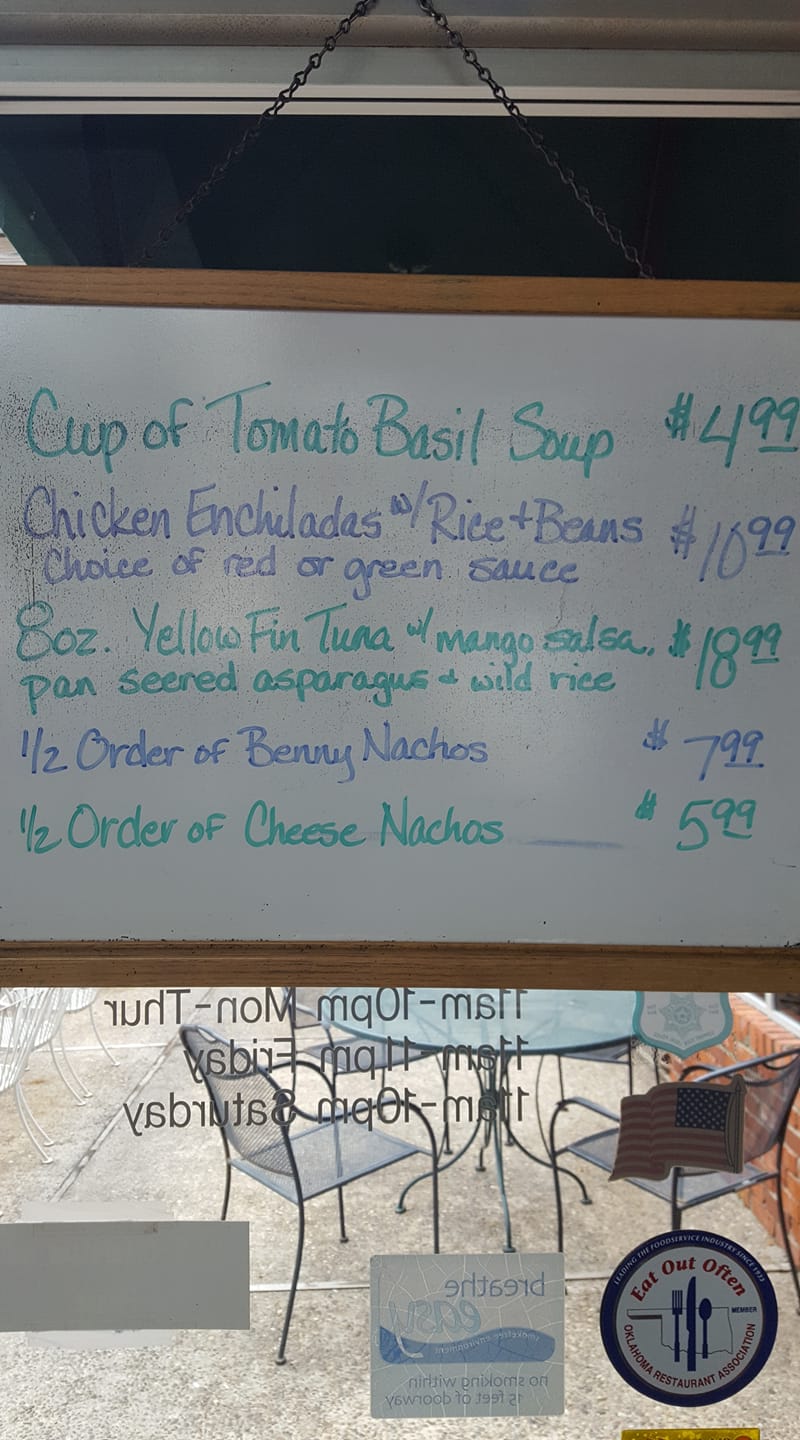 Cup of Tomato Basil Soup $4.99
Chicken Enchiladas w/ Rice + Beans $10.99
Choice of red or green sauce
8oz. Yellow Fin Tuna w/ mango salsa, $18.99
pan seered asparagus & wild rice
1/2 Order of Benny Nachos $7.99
1/2 Order of Cheese Nachos $5.99
11am-10pm Mon-Thur
11am-11pm Friday
11am-10pm Saturday
breathe
easy
smokefree environment
no smoking within
15 feet of doorway
LEADING THE FOODSERVICE INDUSTRY SINCE 1933
Eat Out Often
MEMBER
OKLAHOMA RESTAURANT ASSOCIATION